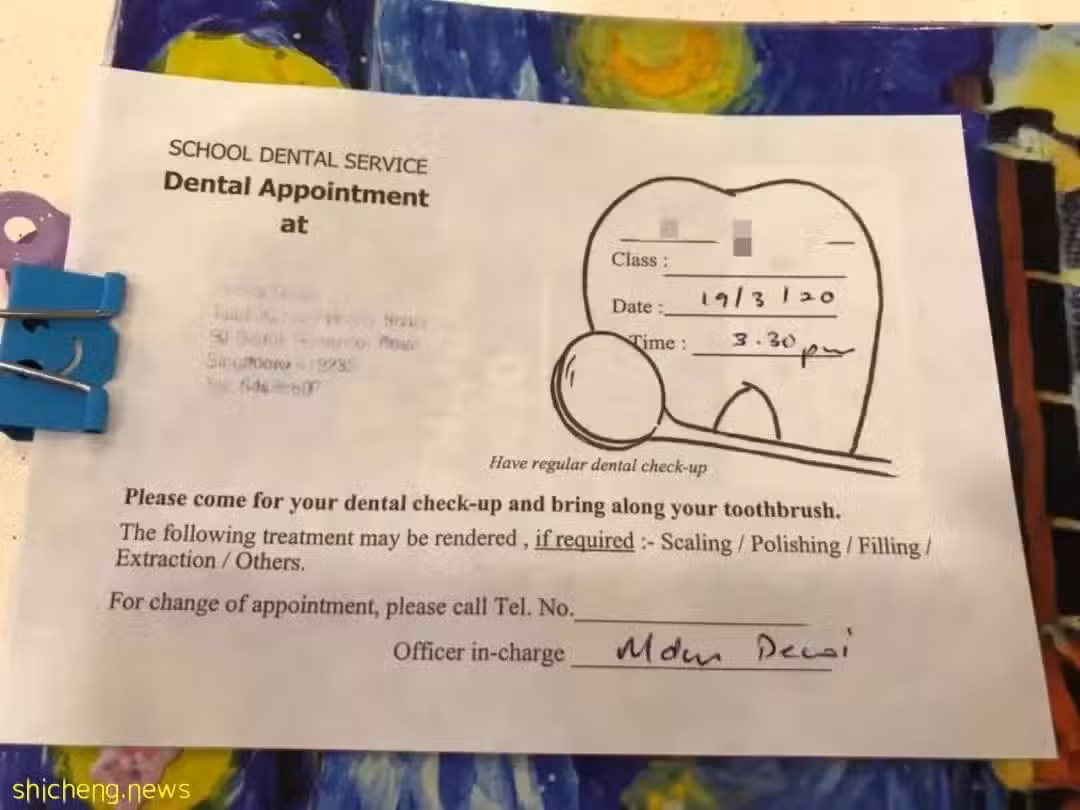 SCHOOL DENTAL SERVICE
Dental Appointment
at
Class :
Date : 19/3/20
Time : 3.30 pm
Have regular dental check-up
Please come for your dental check-up and bring along your toothbrush.
The following treatment may be rendered , if required :- Scaling / Polishing / Filling /
Extraction / Others.
For change of appointment, please call Tel. No.
Officer in-charge Mdm Dewi
shicheng.news